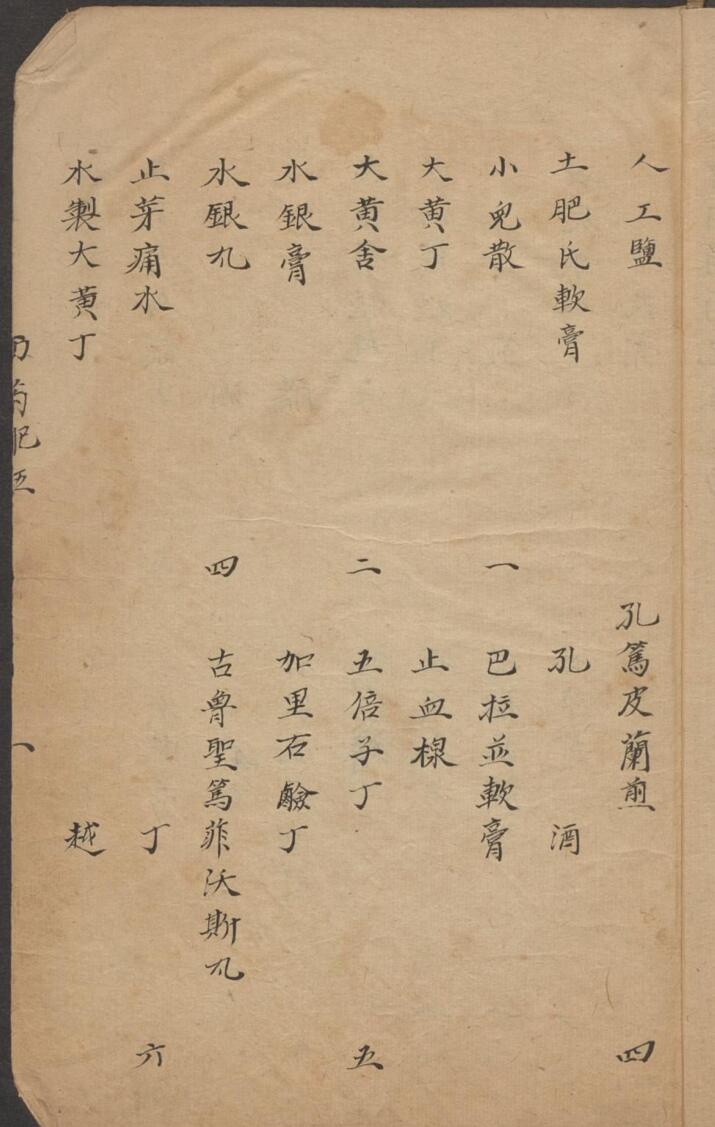 人工鹽
土肥氏軟膏
小兒散 一
大黃丁
大黃舍 二
水銀膏
水銀丸 四
止芽痛水
水製大黃丁
孔篤皮蘭煎 四
孔 酒
巴拉並軟膏
止血
五倍子丁 五
加里石鹼丁
古魯聖篤菲沃斯丸
丁 六
越